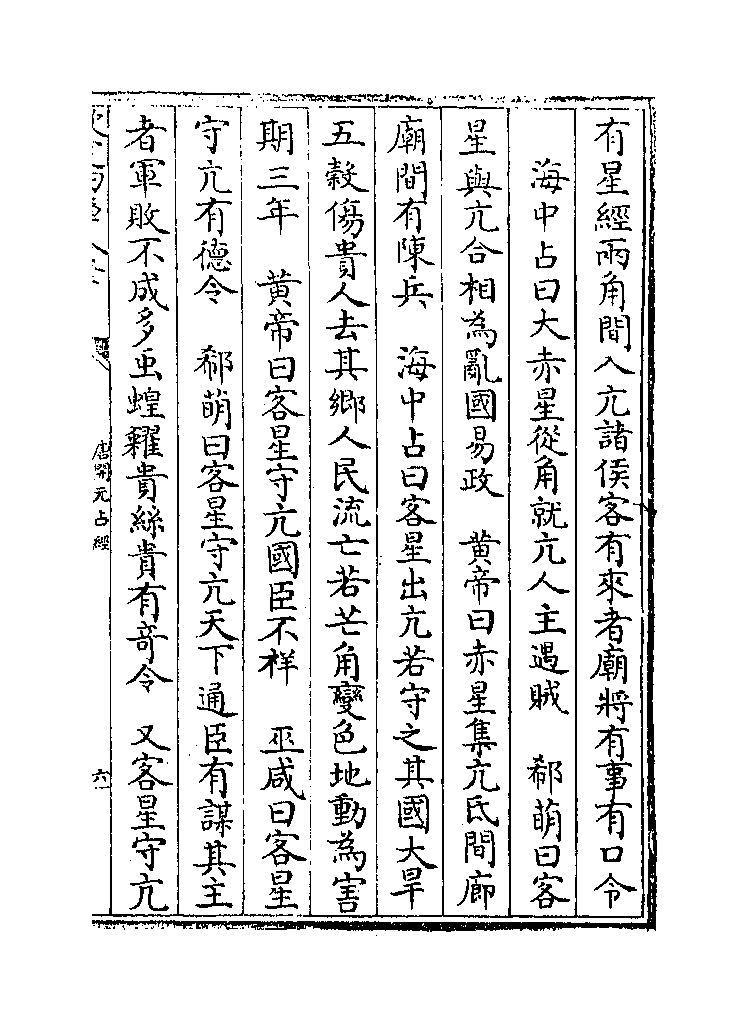 有星經兩角間入亢諸侯客有來者廟將有事有口令
海中占曰大赤星從角就亢人主遇賊　郗萌曰客
星與亢合相為亂國易政　黄帝曰赤星集亢氐間廊
廟間有陳兵　海中占曰客星出亢若守之其國大旱
五穀傷貴人去其鄉人民流亡若芒角變色地動為害
期三年　黄帝曰客星守亢國臣不祥　巫咸曰客星
守亢有德令　郗萌曰客星守亢天下通臣有謀其主
者軍敗不成多虫蝗糴貴絲貴有竒令　又客星守亢
唐開元占經
六